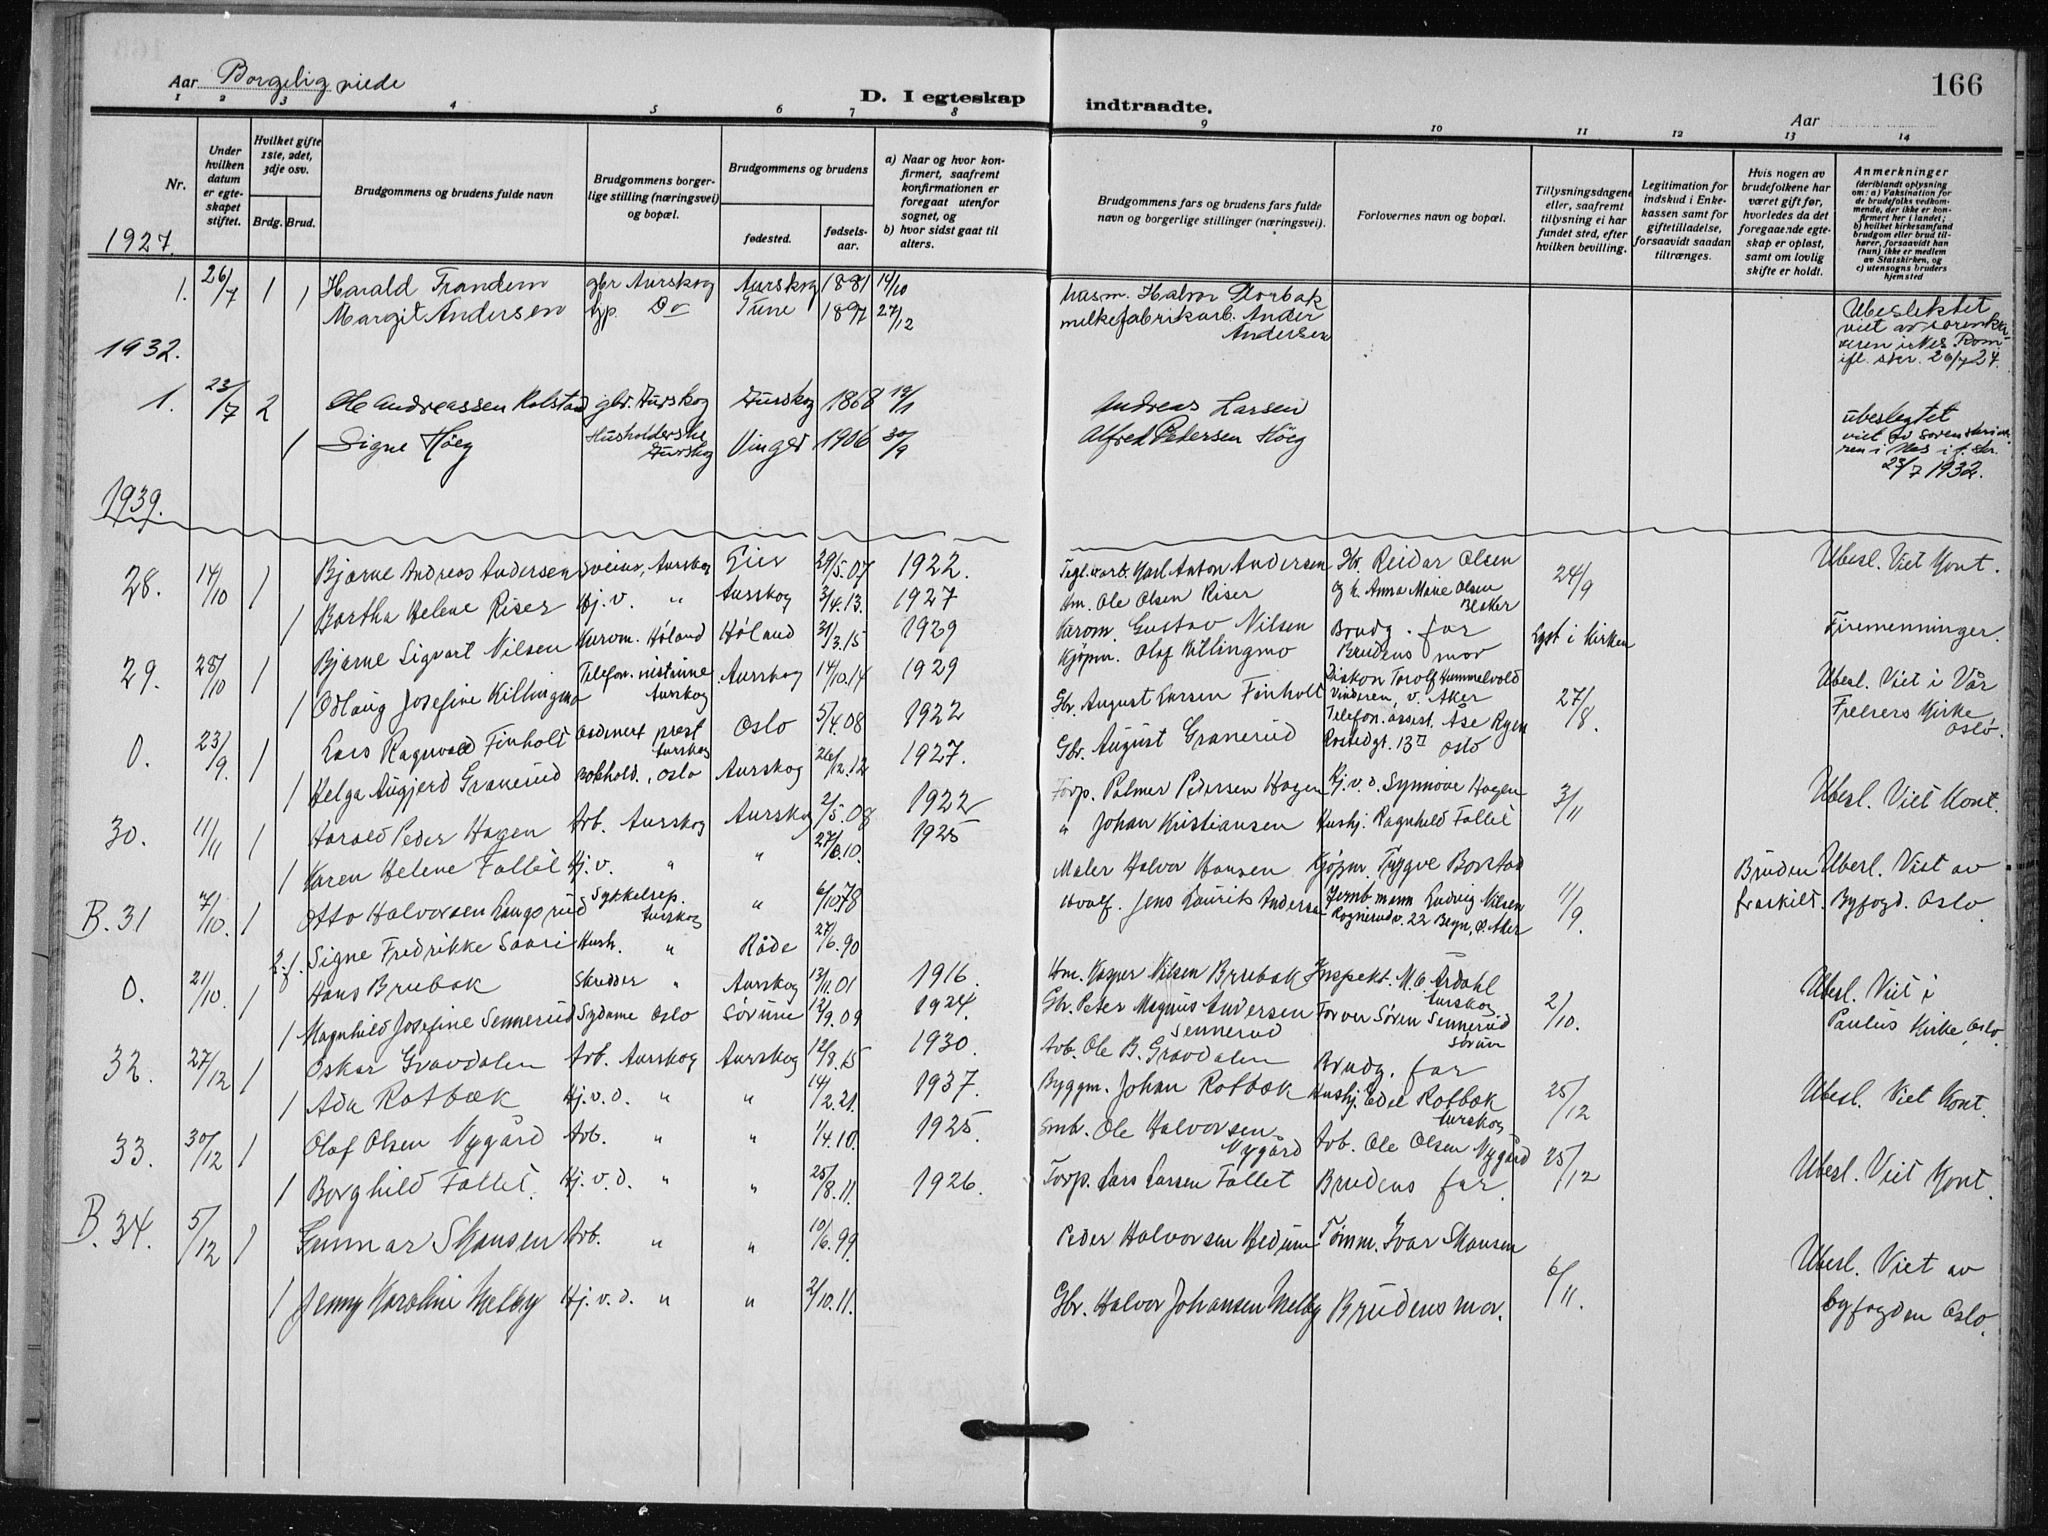 Aar Borgelig viede
D. I egteskap
indtraadte.
Aar
166
1 2 3 4 5 6 7 8 9 10 11 12 13 14
Nr.
Under hvilken datum er egteskapet stiftet.
Hvilket gifte 1ste, 2det, 3dje osv.
Brdg. Brud.
Brudgommens og brudens fulde navn
Brudgommens borgerlige stilling (næringsvei) og bopæl.
Brudgommens og brudens
fødested.
fødselsaar.
a) Naar og hvor konfirmert, saafremt konfirmationen er foregaat utenfor sognet, og
b) hvor sidst gaat til alters.
Brudgommens fars og brudens fars fulde navn og borgerlige stillinger (næringsvei).
Forlovernes navn og bopæl.
Tillysningsdagene eller, saafremt tillysning ei har fundet sted, efter hvilken bevilling.
Legitimation for indskud i Enkekassen samt for giftetilladelse, forsaavidt saadan tiltrænges.
Hvis nogen av brudefolkene har været gift før, hvorledes da det foregaaende egteskap er opløst, samt om lovlig skifte er holdt.
Anmerkninger (deriblandt oplysning om: a) Vaksination for de brudefolks vedkommende, der ikke er konfirmert her i landet; b) hvilket kirkesamfund brudgom eller brud tilhører, forsaavidt han (hun) ikke er medlem av Statskirken, og c) utensogns bruders hjemsted
1927.
1. 26/7 1 Harald Frandem gbr Aurskog Aurskog 1881 14/10 Halvor Storbak Ubeslektet
1 Margit Andersen Do Tune 1897 27/12 melkefabrikarb. Ander Andersen
1932.
1. 23/7 2 Ole Andreassen Kolstad gbr. Aurskog Aurskog 1868 Andreas Larsen ubeslegtet
1 Signe Høeg Husholderske Aurskog Vinger 1906 30/9 Alfred Petersen Høeg
23/7 1932.
1939.
28. 14/10 1 Bjarne Andreas Andersen Aurskog Lier 29/5.07 1922. Karl Anton Andersen Gbr. Reidar Olsen 24/9 Ubesl. Viet Kont.
1 Bertha Helene Riser Hj.v. " Aurskog 3/4.13. 1927 Ole Olsen Riser og h. Anna Marie Olsen Blaker
29. 28/10 1 Bjarne Sigvart Nilsen Høland Høland 31/3.15 1929 Gustav Nilsen Brudg. far Lyst i kirken Firemenninger.
1 Odlaug Josefine Killingmo Aurskog Aurskog 14/10.14 1929 Kjøpm. Olaf Killingmo Brudens mor
0. 23/9. 1 Lars Ragnvald Finholt Ordinert prest Aurskog Oslo 5/4.08 1922 Gbr. August Larsen Finholt Diakon Torolf Hummelvold Vinderen, v. Aker 27/8. Ubesl. Viet i Vår Frelsers Kirke Oslo.
1 Helga Augjerd Granerud Bokhold., Oslo Aurskog 26/12.12 1927. Gbr. August Granerud Telefon. assist. Åse Ryen Rostedgt. 13 II Oslo
30. 11/11 1 Harald Peder Hagen Arb. Aurskog Aurskog 2/5.08 1922 Torp. Palmer Pedersen Hagen Hj.v.d. Synnöve Hagen 3/11 Ubesl. Viet Kont.
1 Karen Helene Fallet Hj.v. " " 1925 " Johan Kristiansen Hushj. Ragnhild Fallet
B. 31 7/10. 1 Otto Halvorsen Langsrud Sykkelrep. Aurskog " 6/10.78 Maler Halvor Hansen Kjøpm. Tryggve Borstad 11/9. Bruden fraskilt. Ubesl. Viet av Byfogd. Oslo
2. f. Signe Fredrikke Saari Hush. " Råde 27/6.90 Jens Laurits Andersen Jernb.mann Ludvig Nilsen
0. 21/10. 1 Hans Brubak Skredder " Aurskog 13/11.01 1916. Kasper Nilsen Brubak Inspekt. M. O. Årdahl Aurskog 2/10. Ubesl. Viet i Paulus Kirke, Oslo.
1 Magnhild Josefine Sennerud Sydame Oslo Sørum 12/9.09 1924. Gbr. Peter Magnus Andersen Sennerud Søren Sennerud Sørum
32. 27/12 1 Oskar Gravdalen Arb. Aurskog Aurskog 12/8.15 1930. Arb. Ole B. Gravdalen Brudg. far 25/12 Ubesl. Viet Kont.
1 Ada Rotbæk Hj.v.d. " " 14/2.21. 1937. Byggm. Johan Rotbæk Hushj. Edel Rotbæk Aurskog
33. 30/12 1 Olaf Olsen Nygård Arb. " " 1/4.10. 1925. Smbr. Ole Halvorsen Nygård Arb. Ole Olsen Nygård 25/12 Ubesl. Viet Kont.
1 Borghild Fallet. Hj.v.d. " " 25/8.11. 1926. Torp. Lars Larsen Fallet Brudens far.
B. 34. 5/12 1 Gunnar Skansen Arb. " " 10/6.99. Peder Halvorsen Hedum Tømm. Ivar Skansen 6/11. Ubesl. Viet av byfogden Oslo.
1 Jenny Karoline Melby Hj.v.d. " " 2/10.11. Gbr. Halvor Johansen Melby Brudens mor.